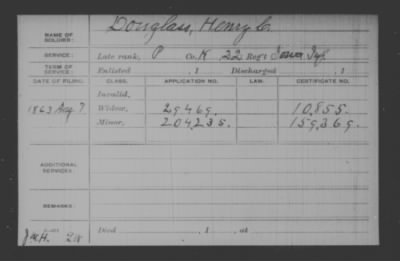 NAME OF SOLDIER: Douglass, Henry C.
SERVICE: Late rank, P Co. K 22 Reg't Iowa Inf.
TERM OF SERVICE: Enlisted , 1 Discharged , 1
DATE OF FILING. CLASS. APPLICATION NO. LAW. CERTIFICATE NO.
Invalid,
1863 Aug 7 Widow, 29469. 10,855.
Minor, 204,235. 159,369.
ADDITIONAL SERVICES:
REMARKS:
Died , 1 , at